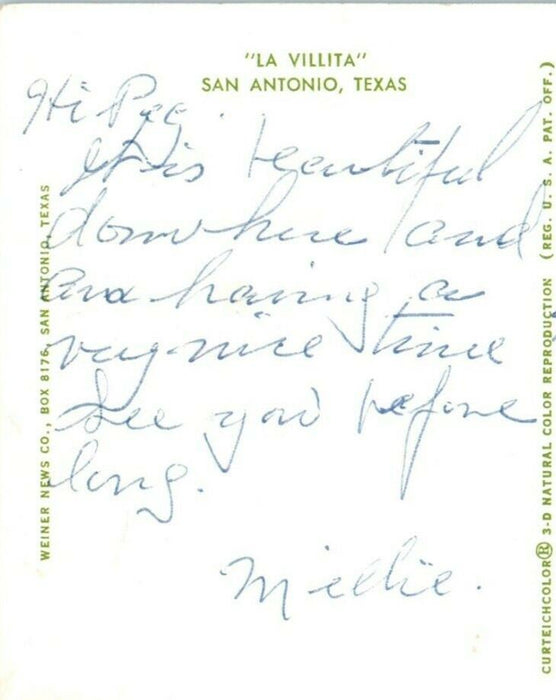 "LA VILLITA"
SAN ANTONIO, TEXAS
Hi Peg.
It is beautiful
down here and
am having a
very nice time
see you before
long.
Millie.
WEINER NEWS CO., BOX 8176, SAN ANTONIO, TEXAS
CURTEICHCOLOR® 3-D NATURAL COLOR REPRODUCTION (REG. U. S. A. PAT. OFF.)